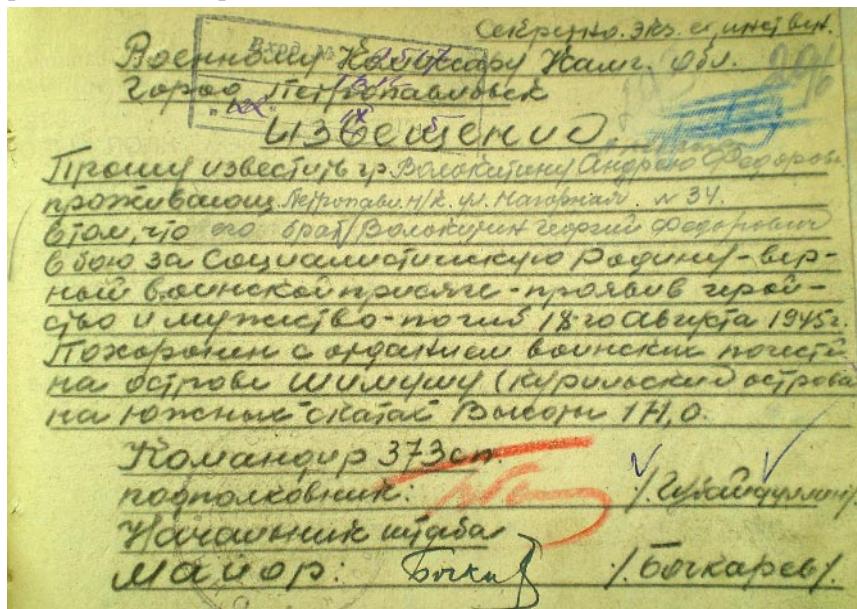 Секретно. экз. единствен.
Вход. №
Военному Комиссару Камч. обл.
Город Петропавловск
Извещение.
Прошу известить гр. Волокитину Андрею Федоров.
проживающ. Петропавл. н/к. ул. Нагорная. № 34.
в том, что его брат Волокитин Георгий Федорович
в бою за Социалистическую Родину - вер-
ный воинской присяге - проявив герой-
ство и мужество - погиб 18го августа 1945г.
Похоронен с отданием воинских почестей
на острове Шимушу (Курильский острова
на южных скатах Высоты 171,0.
Командир 373сп.
подполковник: /. Губайдуллин/
Начальник штаба
майор: /. Бочкарев/.